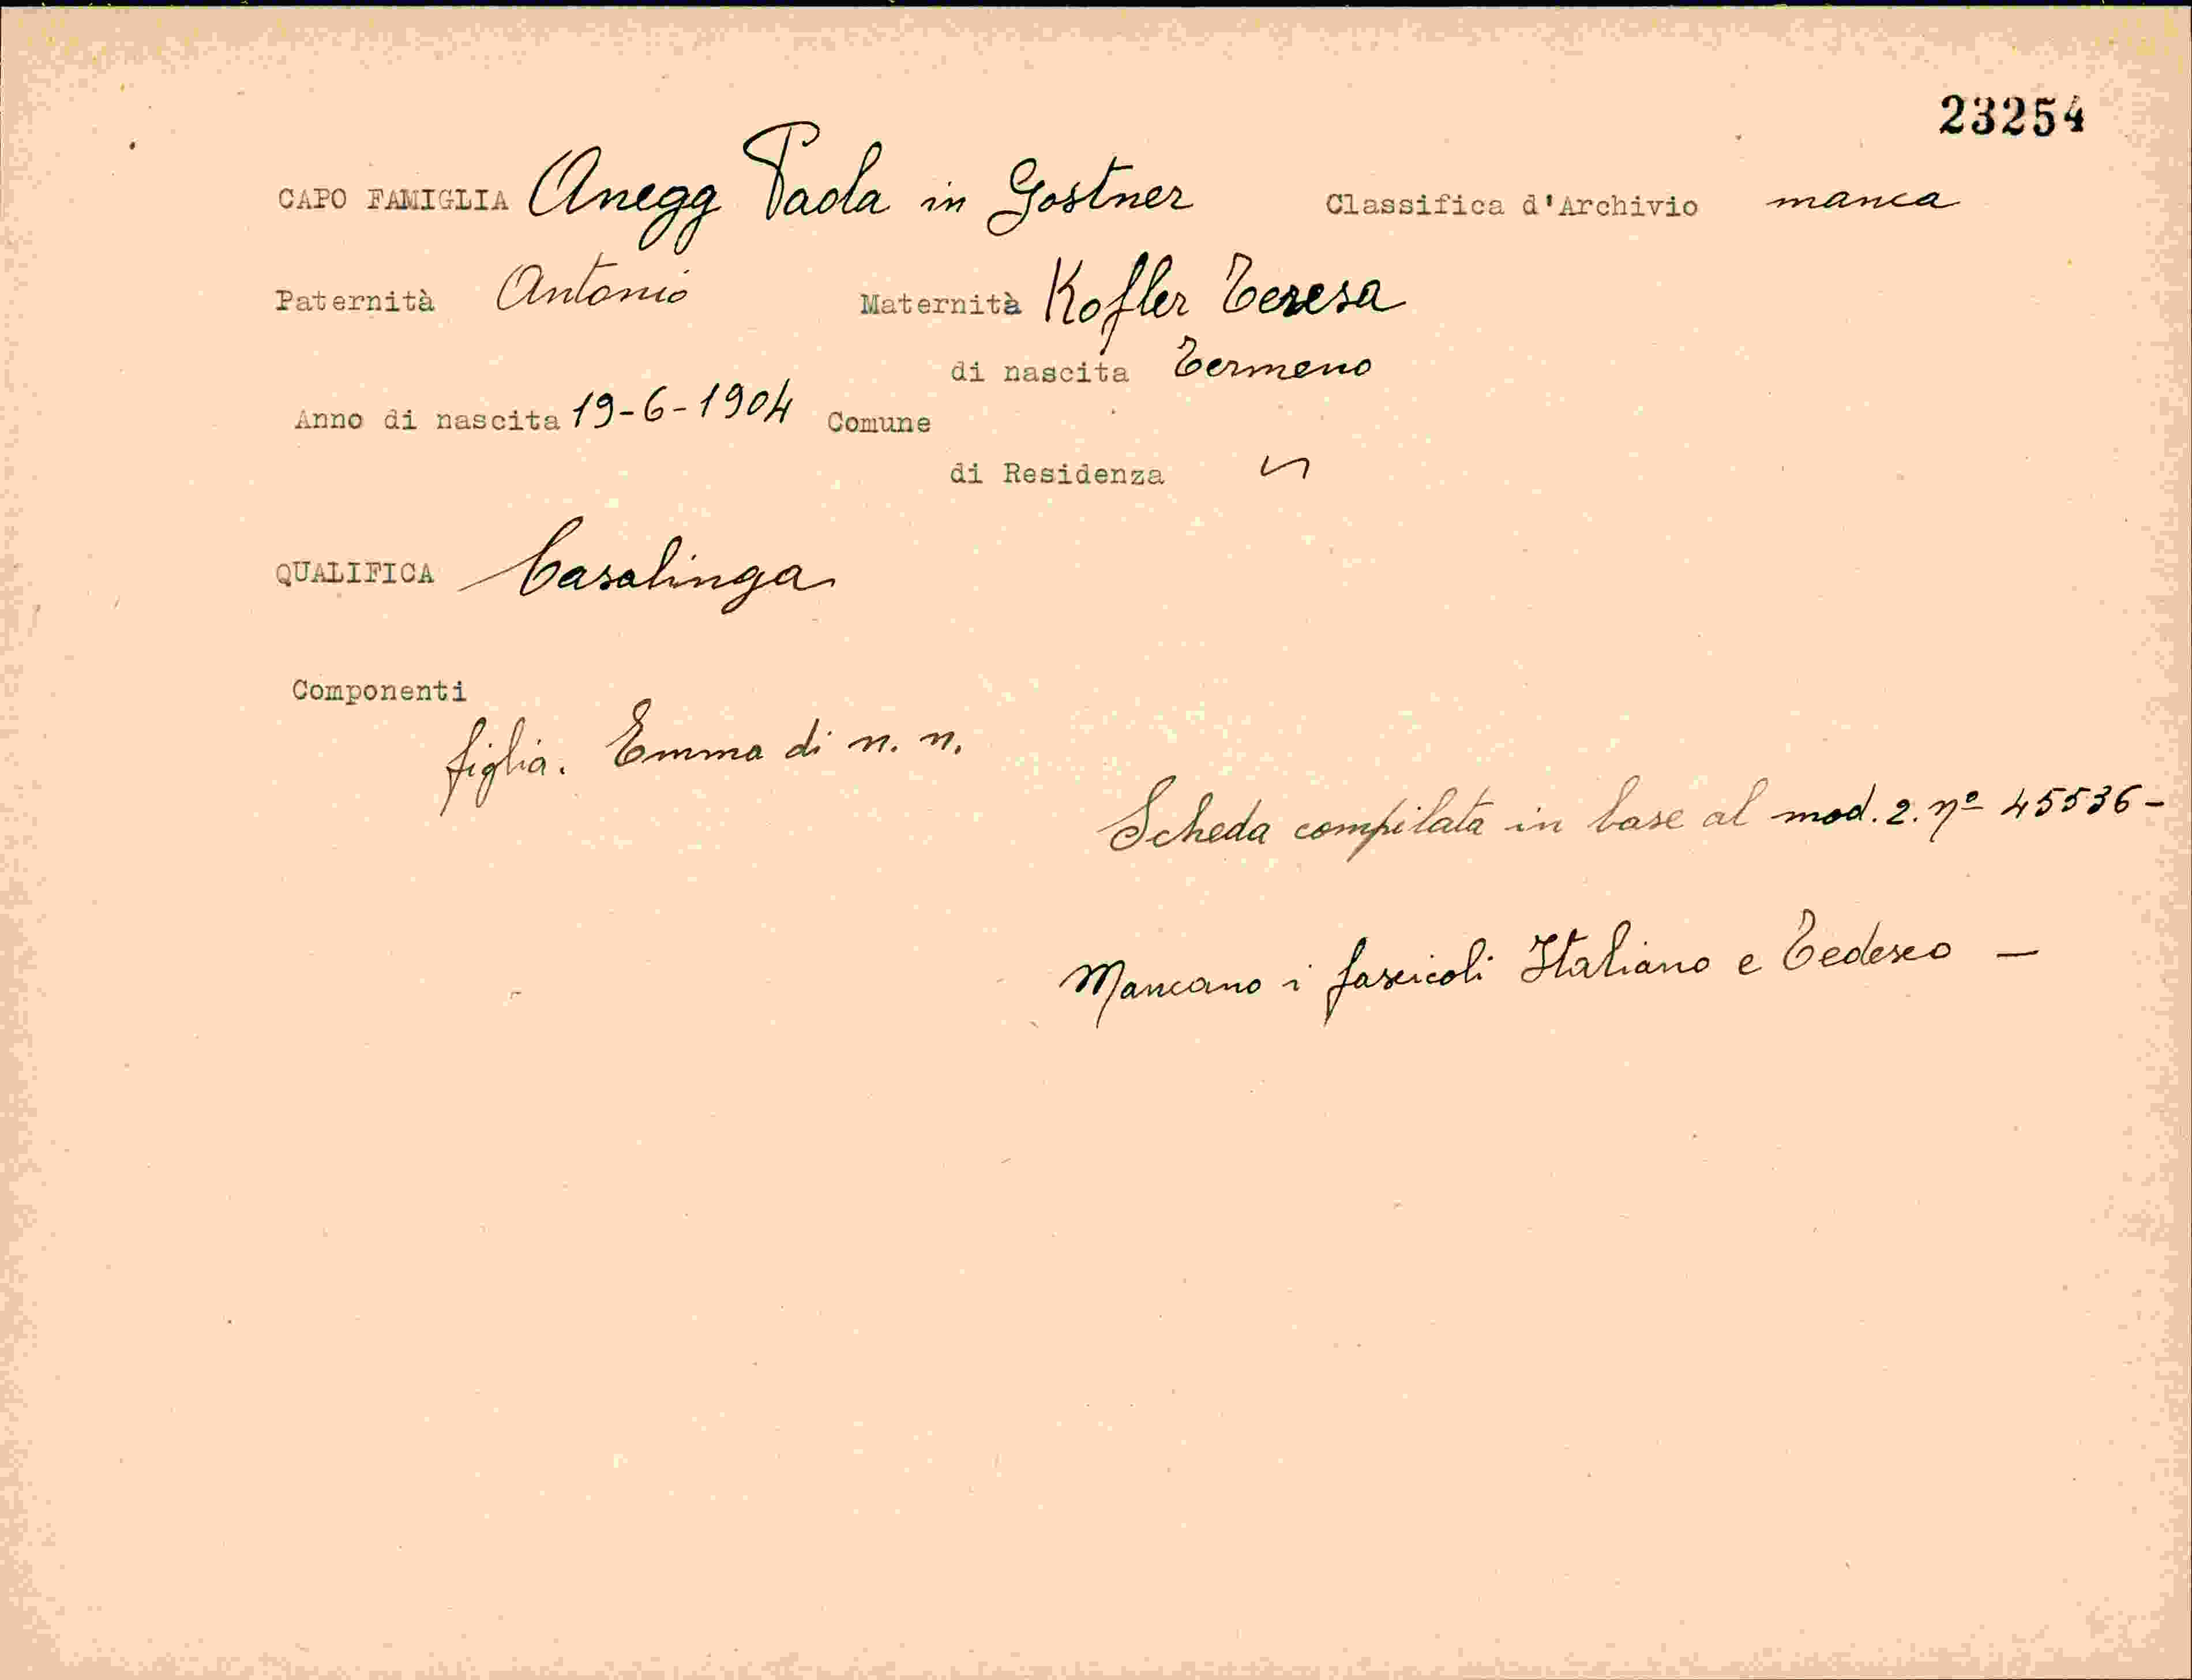 23254
CAPO FAMIGLIA Anegg Paola in Gostner Classifica d'Archivio manca
Paternità Antonio Maternità Kofler Teresa
di nascita Termeno
Anno di nascita 19-6-1904 Comune
di Residenza
QUALIFICA Casalinga
Componenti
figlia. Emma di n. n.
Scheda compilata in base al mod. 2. nº 45536-
Mancano i fascicoli Italiano e Tedesco —